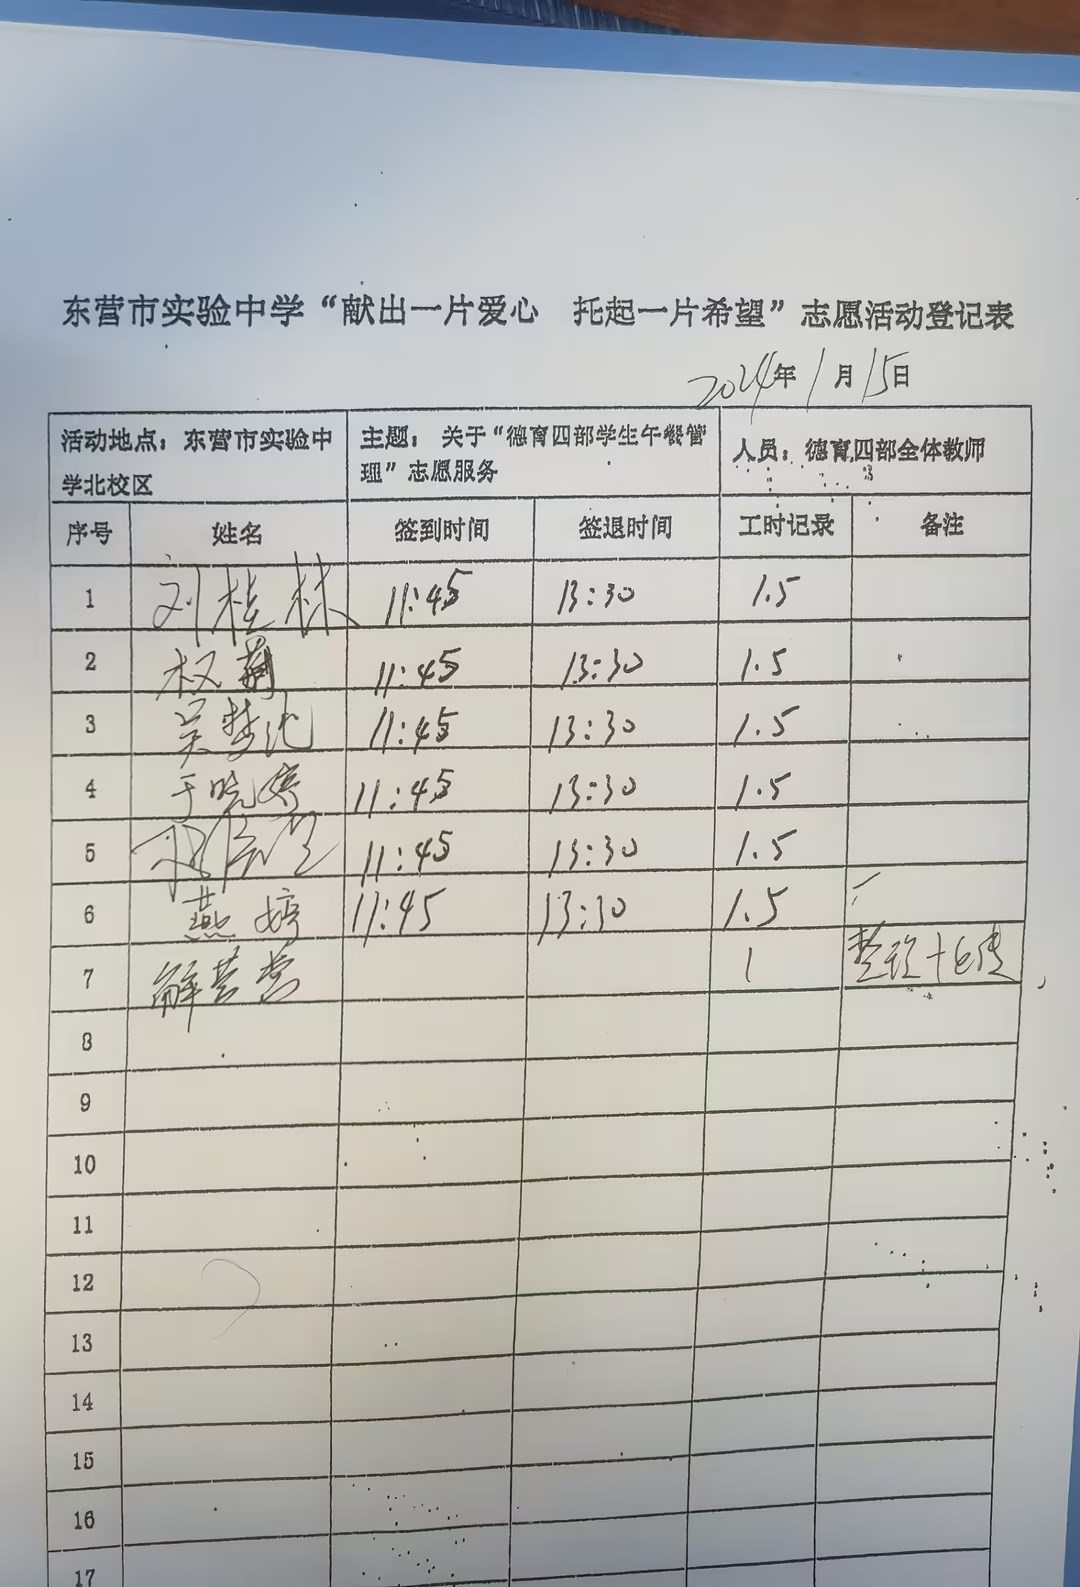 东营市实验中学“献出一片爱心 托起一片希望”志愿活动登记表
2024年1月15日
活动地点：东营市实验中学北校区 主题：关于“德育四部学生午餐管理”志愿服务 人员：德育四部全体教师
序号 姓名 签到时间 签退时间 工时记录 备注
1 刘桂林 11:45 13:30 1.5
2 权 11:45 13:30 1.5
3 吴梦 11:45 13:30 1.5
4 于晓婷 11:45 13:30 1.5
5 11:45 13:30 1.5
6 燕婷 11:45 13:30 1.5
7 解芸芸 1 整理+上传
8
9
10
11
12
13
14
15
16
17